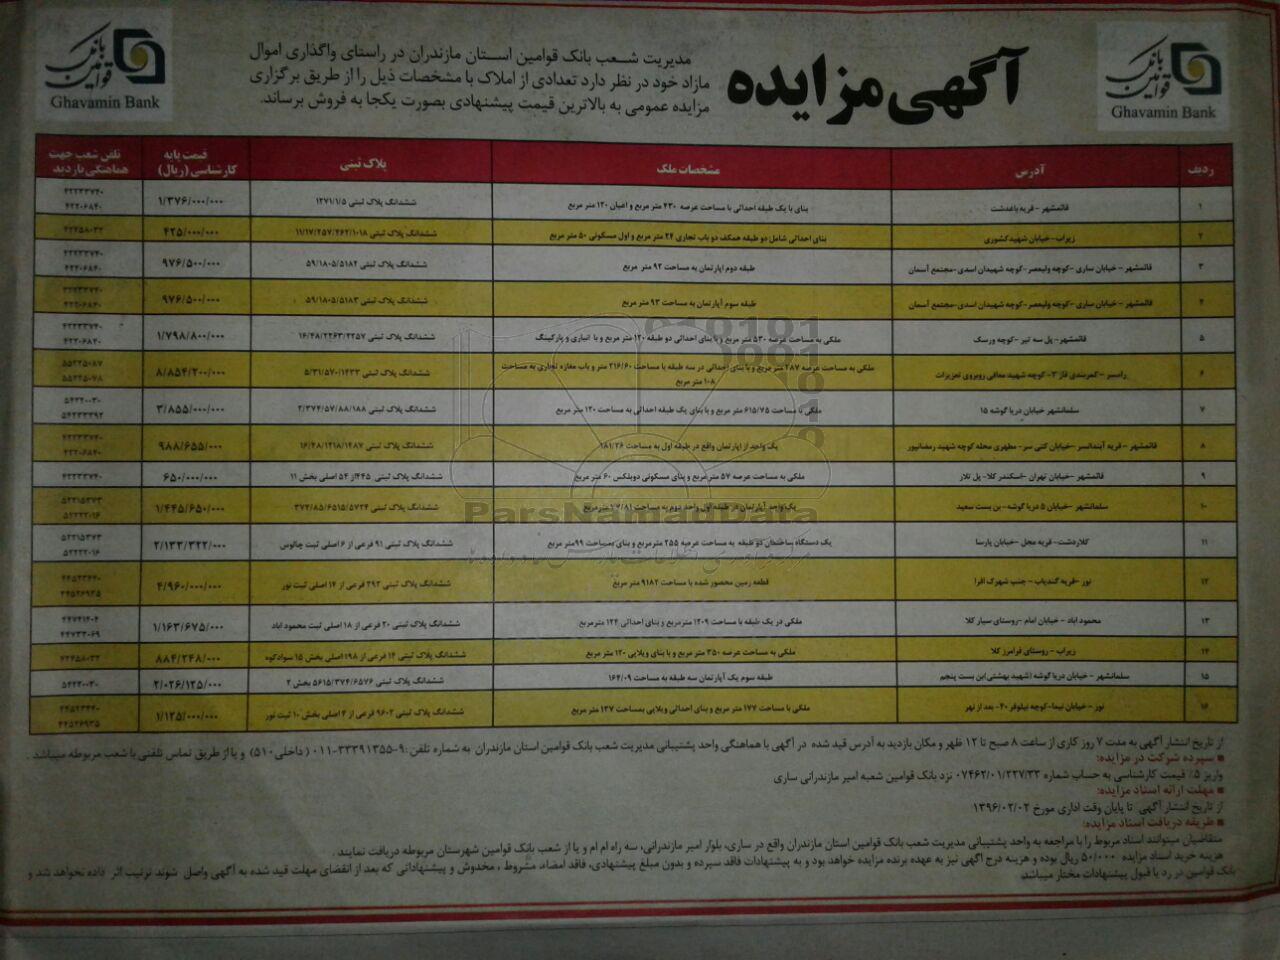 بانک قوامین
Ghavamin Bank
آگهی مزایده
مدیریت شعب بانک قوامین استان مازندران در راستای واگذاری اموال
مازاد خود در نظر دارد تعدادی از املاک با مشخصات ذیل را از طریق برگزاری
مزایده عمومی به بالاترین قیمت پیشنهادی بصورت یکجا به فروش برساند.
بانک قوامین
Ghavamin Bank
ردیف آدرس مشخصات ملک پلاک ثبتی قیمت پایه کارشناسی (ریال) تلفن شعب جهت هماهنگی بازدید
۱ قائمشهر - قریه باغدشت بنای با یک طبقه احداثی با مساحت عرصه ۴۳۰ متر مربع و اعیان ۱۲۰ متر مربع ششدانگ پلاک ثبتی ۱۲۷۱/۱/۵ ۱/۳۷۶/۰۰۰/۰۰۰
۲ زیراب-خیابان شهید کشوری بنای احداثی شامل دو طبقه همکف دو باب تجاری ۲۴ متر مربع و اول مسکونی ۵۰ متر مربع ششدانگ پلاک ثبتی ۱۱/۱۷/۲۵۷/۴۶۲/۱۰۱۸ ۴۲۵/۰۰۰/۰۰۰
۳ قائمشهر - خیابان ساری -کوچه ولیعصر-کوچه شهیدان اسدی-مجتمع آسمان طبقه دوم اپارتمان به مساحت ۹۲ متر مربع ششدانگ پلاک ثبتی ۵۹/۱۸۰۵/۵۱۸۲ ۹۷۶/۵۰۰/۰۰۰
۴ قائمشهر - خیابان ساری -کوچه ولیعصر-کوچه شهیدان اسدی-مجتمع آسمان طبقه سوم آپارتمان به مساحت ۹۳ متر مربع ششدانگ پلاک ثبتی ۵۹/۱۸۰۵/۵۱۸۳ ۹۷۶/۵۰۰/۰۰۰
۵ قائمشهر- پل سه تیر -کوچه ورسک ملکی به مساحت عرصه ۵۳۰ متر مربع و با بنای احداثی دو طبقه ۱۲۰ متر مربع و با انباری و پارکینگ ششدانگ پلاک ثبتی ۱۶/۴۸/۲۲۶۳/۴۲۵۷ ۱/۷۹۸/۸۰۰/۰۰۰
۶ رامسر -کمربندی فاز ۳-کوچه شهید معافی روبروی تعزیرات ملکی به مساحت عرصه ۲۸۷ متر مربع و با بنای احداثی در سه طبقه با مساحت ۲۱۶/۶۰ متر و باب مغازه تجاری به مساحت ۱۰۸ متر مربع ششدانگ پلاک ثبتی ۵/۳۱/۵۷۰۱۴۳۳ ۸/۸۵۴/۲۰۰/۰۰۰
۷ سلمانشهر خیابان دریا گوشه ۱۵ ملکی با مساحت ۶۱۵/۷۵ متر مربع و با بنای یک طبقه احداثی به مساحت ۱۲۰ متر مربع ششدانگ پلاک ثبتی ۲/۳۷۴/۵۷/۸۸/۱۸۸ ۳/۸۵۵/۰۰۰/۰۰۰
۸ قائمشهر - قریه آبندانسر -خیابان کتی سر- مطهری محله کوچه شهید رمضانپور یک واحد از اپارتمان واقع در طبقه اول به مساحت ۱۸۱/۲۶ ششدانگ پلاک ثبتی ۱۶/۲۸/۱۲۱۸/۱۲۸۷ ۹۸۸/۶۵۵/۰۰۰
۹ قائمشهر - خیابان تهران -اسکندر کلا- پل تلار ملکی به مساحت عرصه ۵۷ متر مربع و بنای مسکونی دوبلکس ۶۰ متر مربع ششدانگ پلاک ثبتی ۴۴۵ از ۵۴ اصلی بخش ۱۱ ۶۵۰/۰۰۰/۰۰۰
۱۰ سلمانشهر -خیابان ۵ دریا گوشه- بن بست سعید یک واحد آپارتمان در طبقه اول واحد دوم به مساحت ۷۷/۸۱ مترمربع ششدانگ پلاک ثبتی ۳۷۴/۸۵/۶۵۱۵/۵۷۲۴ ۱/۴۴۵/۶۵۰/۰۰۰
۱۱ کلاردشت- قریه مجل -خیابان پارسا یک دستگاه ساختمان دو طبقه به مساحت عرصه ۲۵۵ مترمربع و بنای بمساحت ۹۹ متر مربع ششدانگ پلاک ثبتی ۹۱ فرعی از ۶ اصلی ثبت چالوس ۲/۱۳۳/۳۲۲/۰۰۰
۱۲ نور -قریه گندیاب - جنب شهرک افرا قطعه زمین محصور شده با مساحت ۹۱۸۲ متر مربع ششدانگ پلاک ثبتی ۲۹۲ فرعی از ۱۴ اصلی ثبت نور ۴/۹۶۰/۰۰۰/۰۰۰
۱۳ محمود اباد - خیابان امام -روستای سیار کلا ملکی در یک طبقه با مساحت ۱۲۰۹ مترمربع و بنای احداثی ۱۲۴ مترمربع ششدانگ پلاک ثبتی ۲۰ فرعی از ۱۸ اصلی ثبت محمود اباد ۱/۱۶۳/۶۷۵/۰۰۰
۱۴ زیراب - روستای فرامرز کلا ملکی به مساحت عرصه ۳۵۰ متر مربع و با بنای ویلایی ۱۲۰ متر مربع ششدانگ پلاک ثبتی ۱۴ فرعی از ۱۹۸ اصلی بخش ۱۵ سوادکوه ۸۸۴/۲۴۸/۰۰۰
۱۵ سلمانشهر - خیابان دریا گوشه (شهید بهشتی)بن بست پنجم طبقه سوم یک آپارتمان سه طبقه به مساحت ۱۶۴/۰۹ ششدانگ پلاک ثبتی ۵۶۱۵/۳۷۴/۶۵۷۶ بخش ۲ ۲/۰۲۶/۱۲۵/۰۰۰
۱۶ نور - خیابان نیما-کوچه نیلوفر ۴۰- بعد از نهر ملکی با مساحت ۱۷۷ متر مربع و بنای احداثی ویلایی بمساحت ۱۳۷ متر مربع ششدانگ پلاک ثبتی ۹۶۰۲ فرعی از ۴ اصلی بخش ۱۰ ثبت نور ۱/۱۲۵/۰۰۰/۰۰۰
ParsNamadData
از تاریخ انتشار آگهی به مدت ۷ روز کاری از ساعت ۸ صبح تا ۱۲ ظهر و مکان بازدید به آدرس قید شده در آگهی با هماهنگی واحد پشتیبانی مدیریت شعب بانک قوامین استان مازندران به شماره تلفن :۹-۳۳۳۹۱۳۵۵-۰۱۱ (داخلی ۵۱۰) و یا از طریق تماس تلفنی با شعب مربوطه میباشد .
■ سپرده شرکت در مزایده:
واریز ۵٪ قیمت کارشناسی به حساب شماره ۰۷۴۶۲/۰۱/۲۲۷/۳۳ نزد بانک قوامین شعبه امیر مازندرانی ساری
■ مهلت ارائه اسناد مزایده:
از تاریخ انتشار آگهی تا پایان وقت اداری مورخ ۱۳۹۶/۰۲/۰۲
■ طریقه دریافت اسناد مزایده:
متقاضیان میتوانند اسناد مربوط را با مراجعه به واحد پشتیبانی مدیریت شعب بانک قوامین استان مازندران واقع در ساری، بلوار امیر مازندرانی، سه راه ام ام و یا از شعب بانک قوامین شهرستان مربوطه دریافت نمایند .
هزینه خرید اسناد مزایده ۵۰/۰۰۰ ریال بوده و هزینه درج آگهی نیز به عهده برنده مزایده خواهد بود و به پیشنهادات فاقد سپرده و بدون مبلغ پیشنهادی، فاقد امضاء، مشروط ، مخدوش و پیشنهاداتی که بعد از انقضای مهلت قید شده به آگهی واصل شوند ترتیب اثر داده نخواهد شد و
بانک قوامین در رد یا قبول پیشنهادات مختار میباشد.